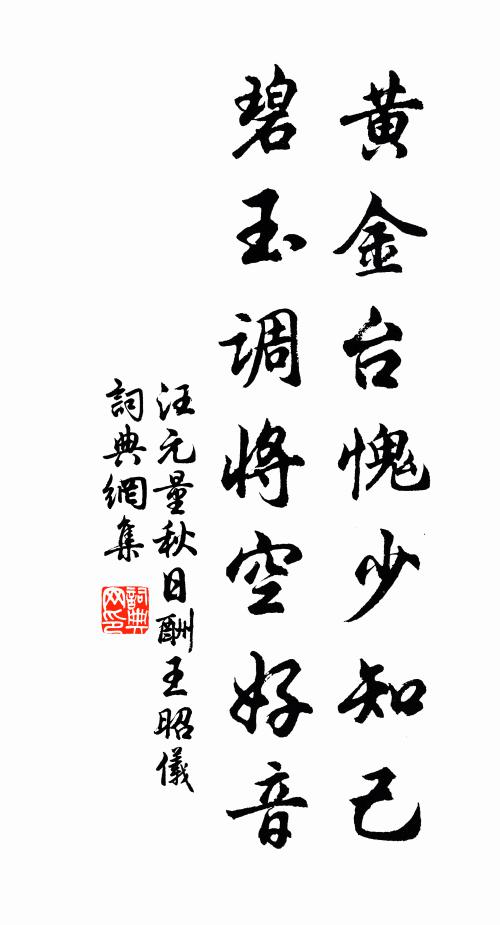 黄金台愧少知己
碧玉调将空好音
汪元量秋日酬王昭儀
詞典網集
詞典网印